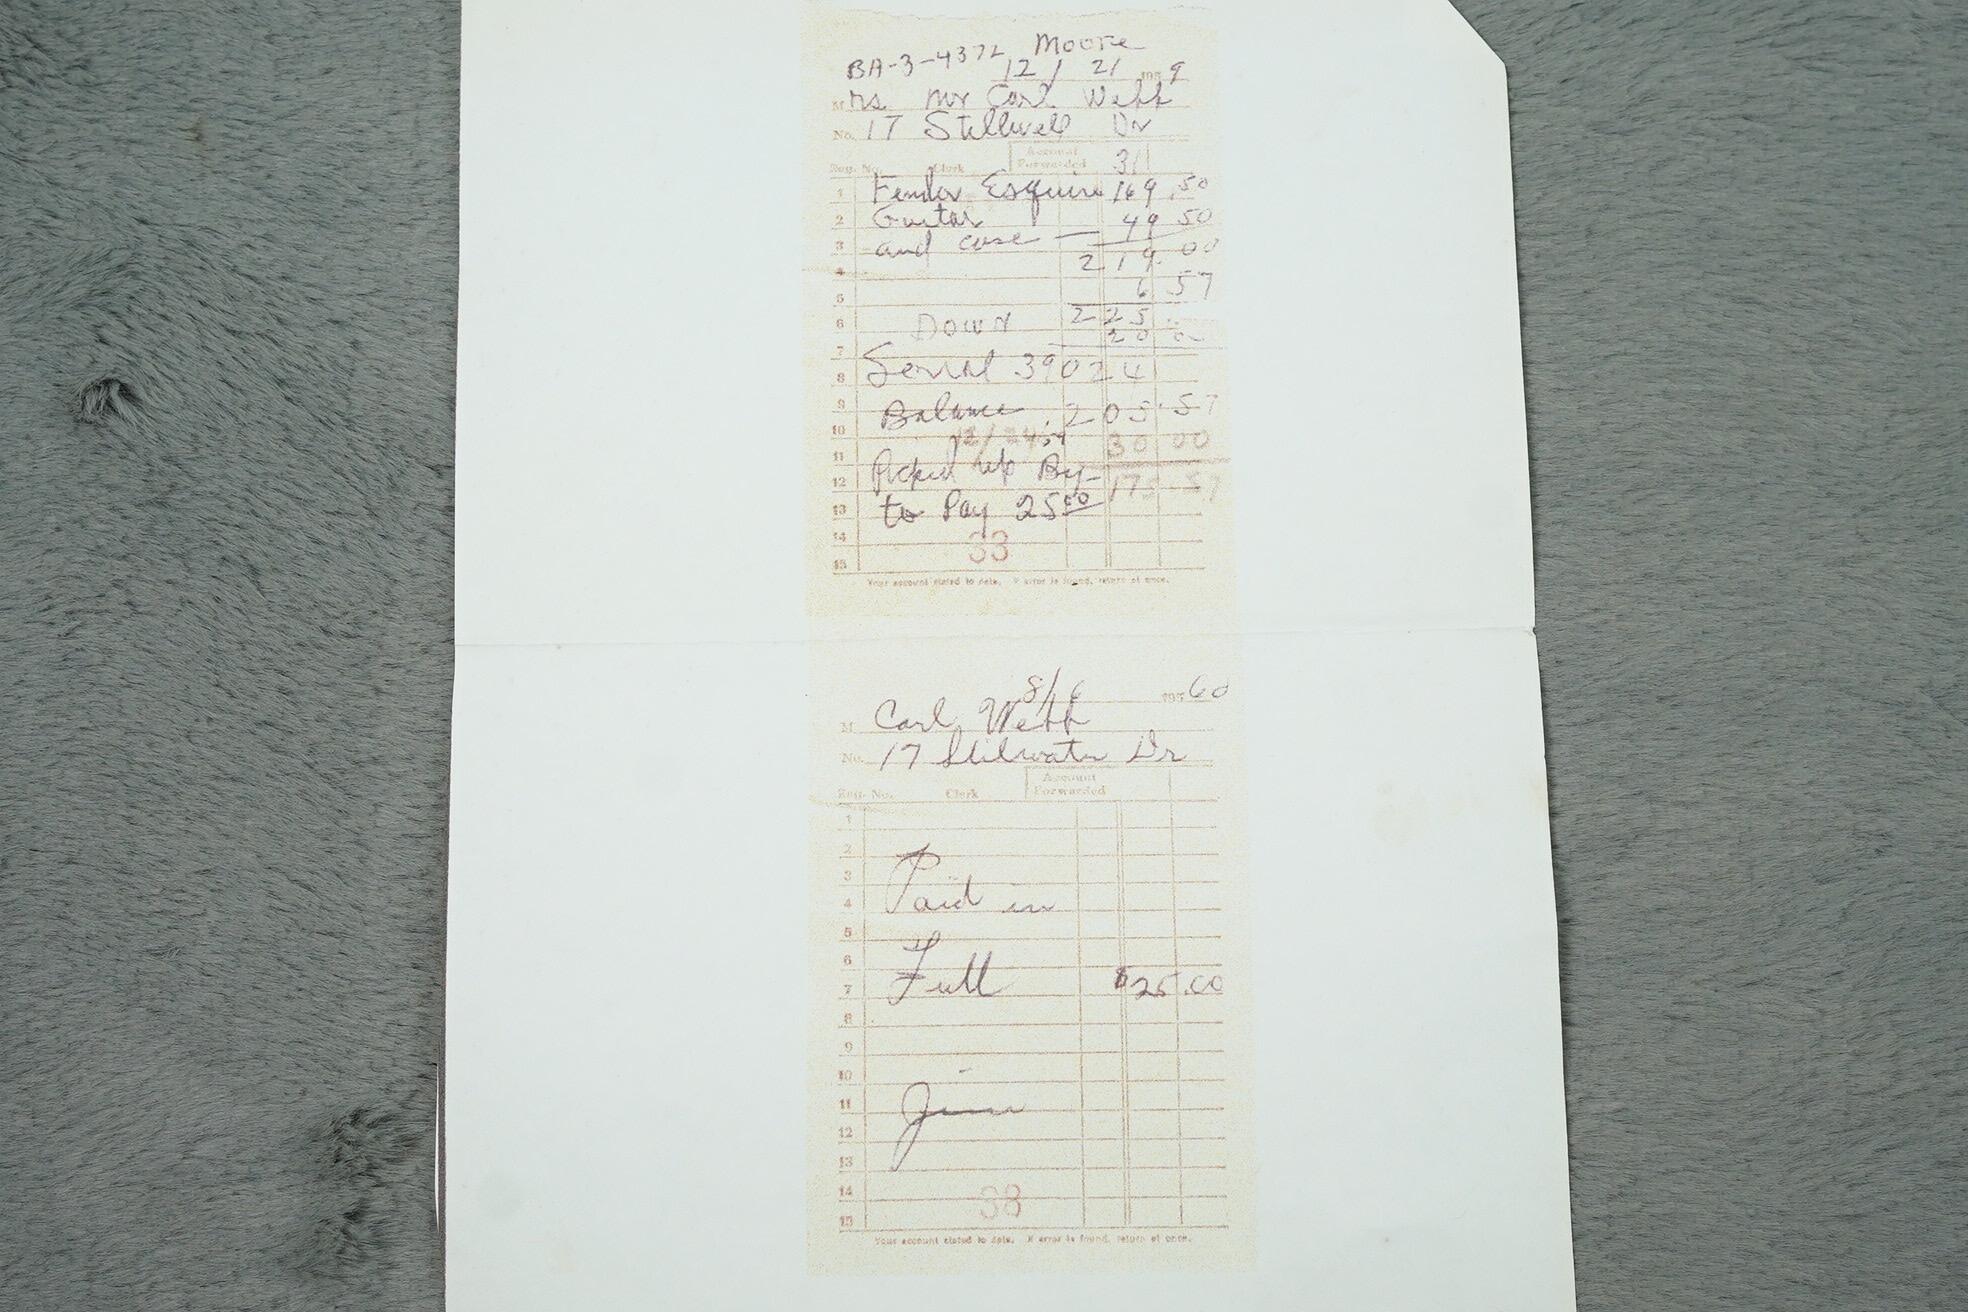 BA-3-4372 Moore
12/21 1959
Mrs. Mr Carl Webb
No. 17 Stillwell Dr
Account
Reg. No. Clerk Forwarded 31
1 Fender Esquire 169.50
2 Guitar 49 50
3 and case — 219.00
4
5 6 57
6 Down 225.
7 20
8 Serial 39024
9 Balance 205.57
10 12/24/59 30 00
11 Picked up By
12 175.57
13 to Pay 25.00
14 33
15
Your account stated to date. If error is found, return at once.
8/6 195 60
M Carl Webb
No. 17 Stilwater Dr
Account
Reg. No. Clerk Forwarded
1
2
3 Paid in
4
5
6 Full
7 $25.00
8
9
10
11 Jim
12
13
14 38
15
Your account stated to date. If error is found, return at once.